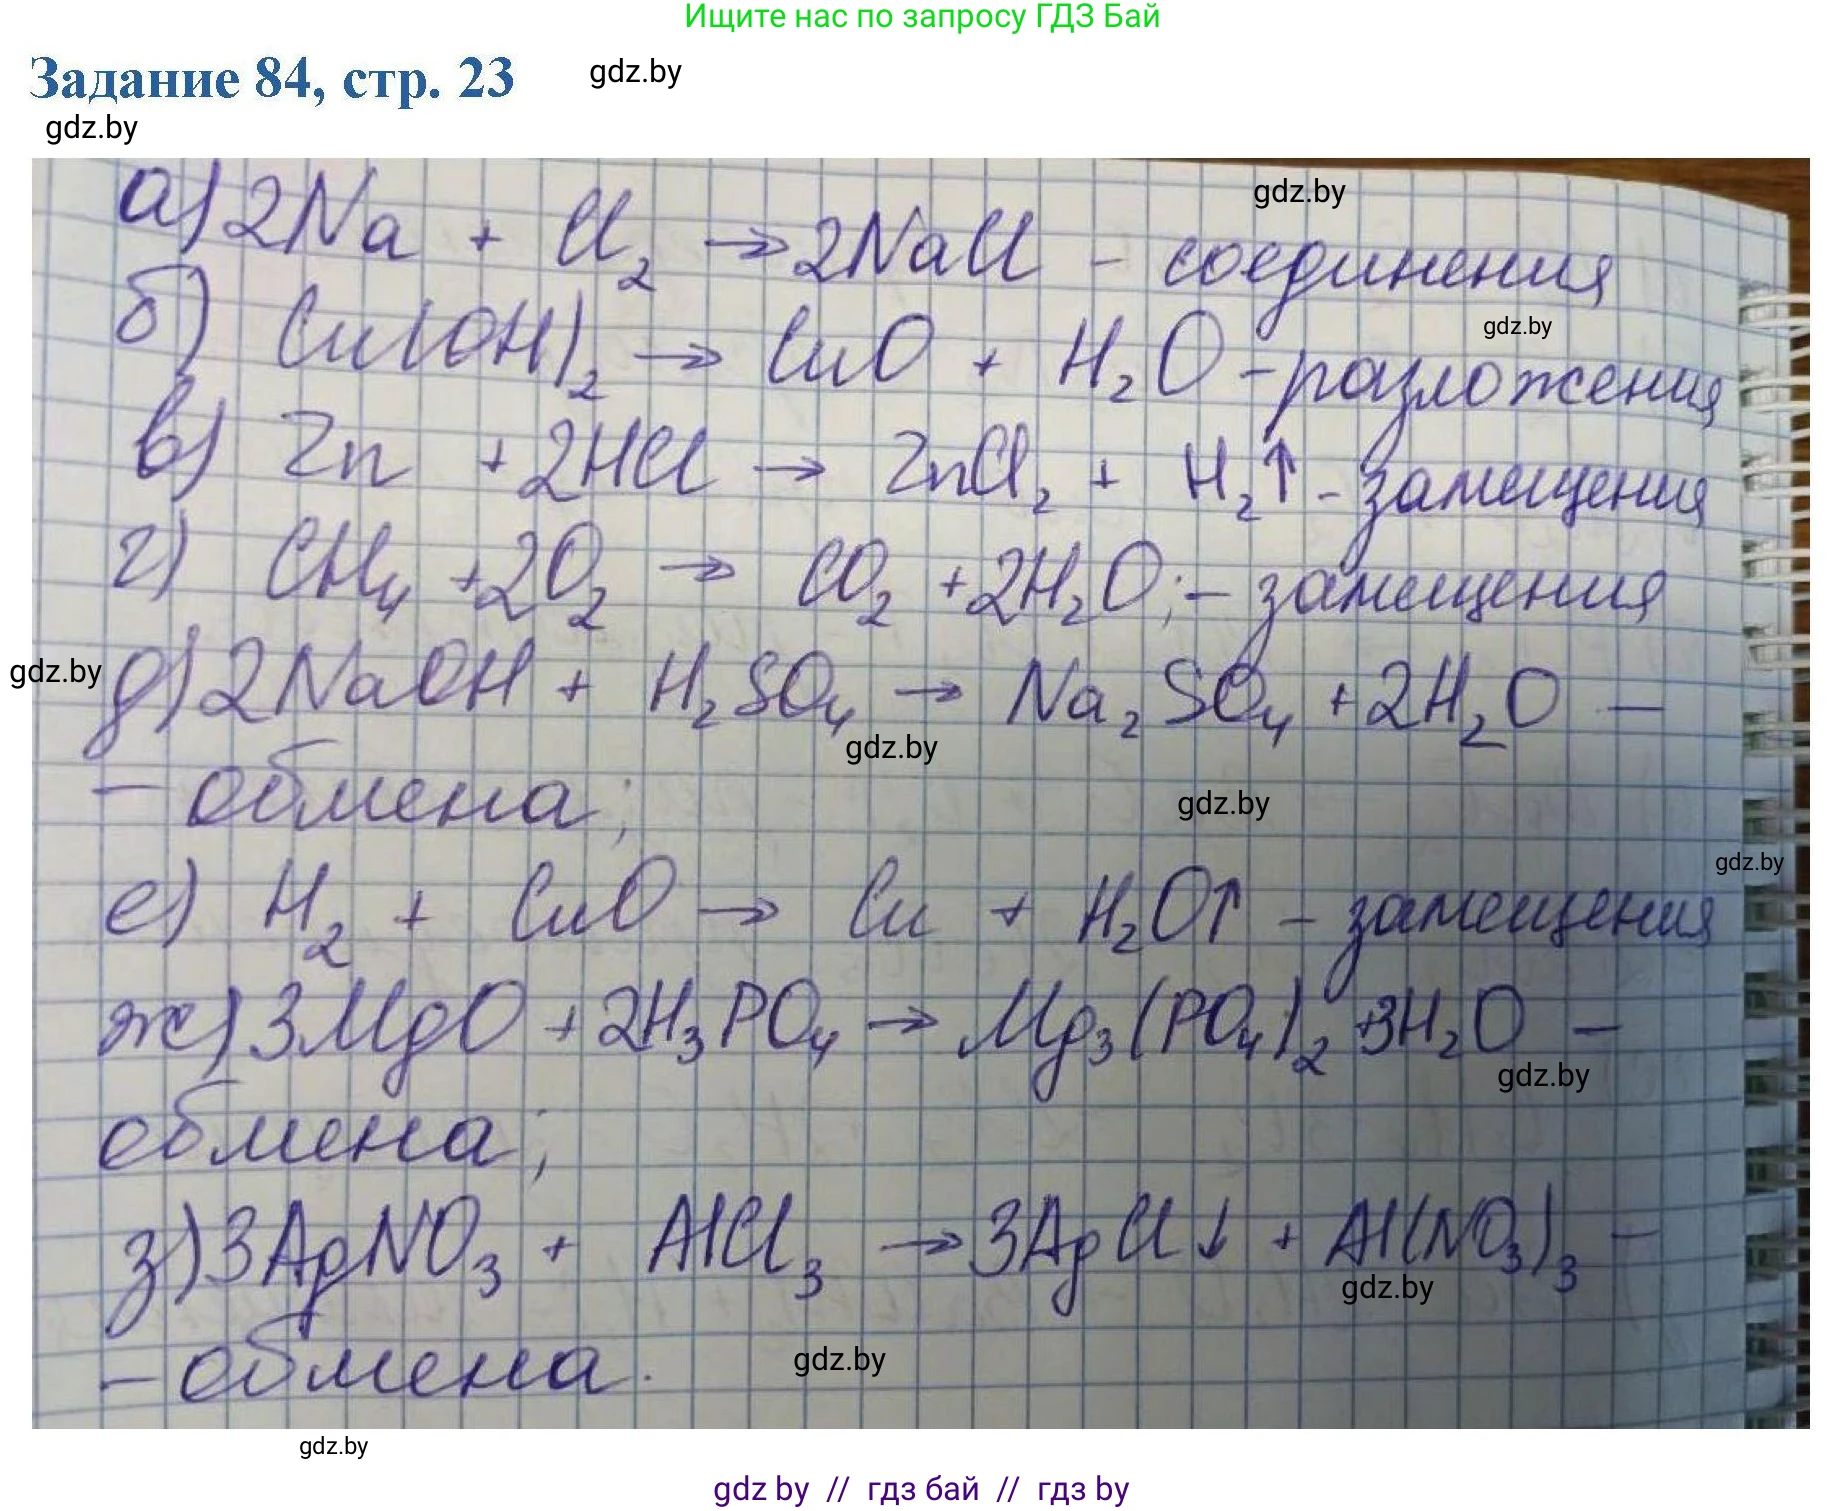 Ищите нас по запросу ГДЗ Бай
Задание 84, стр. 23
gdz.by
gdz.by
gdz.by
а) 2Na + Cl₂ → 2NaCl - соединения
gdz.by
б) Cu(OH)₂ → CuO + H₂O - разложения
в) Zn + 2HCl → ZnCl₂ + H₂↑ - замещения
г) CH₄ + 2O₂ → CO₂ + 2H₂O; - замещения
gdz.by
д) 2NaOH + H₂SO₄ → Na₂SO₄ + 2H₂O -
gdz.by
- обмена;
gdz.by
gdz.by
е) H₂ + CuO → Cu + H₂O↑ - замещения
ж) 3MgO + 2H₃PO₄ → Mg₃(PO₄)₂ + 3H₂O -
gdz.by
обмена;
з) 3AgNO₃ + AlCl₃ → 3AgCl↓ + Al(NO₃)₃ -
gdz.by
- обмена.
gdz.by
gdz.by
gdz by // гдз бай // гдз by